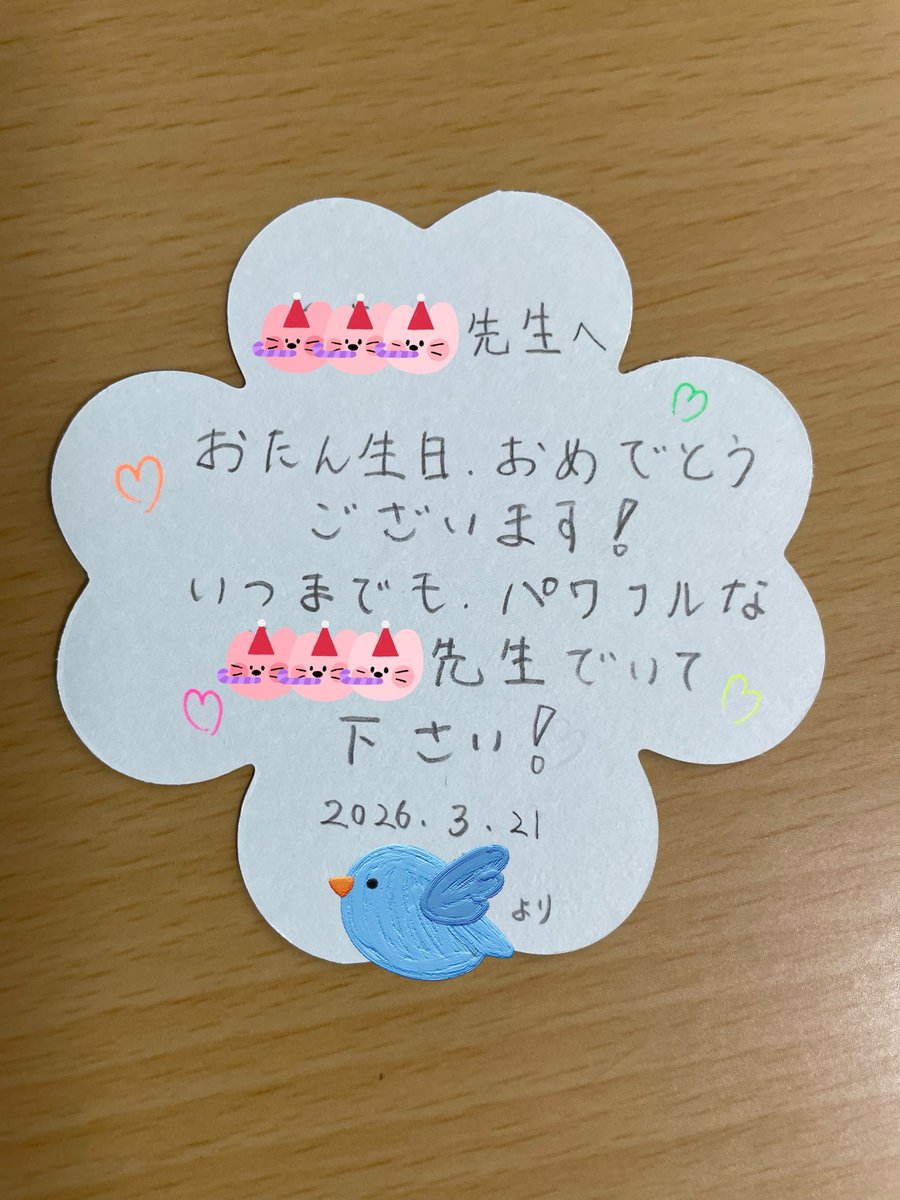 先生へ
おたん生日.おめでとう
ございます!
いつまでも.パワフルな
先生でいて
下さい!
2026.3.21
より